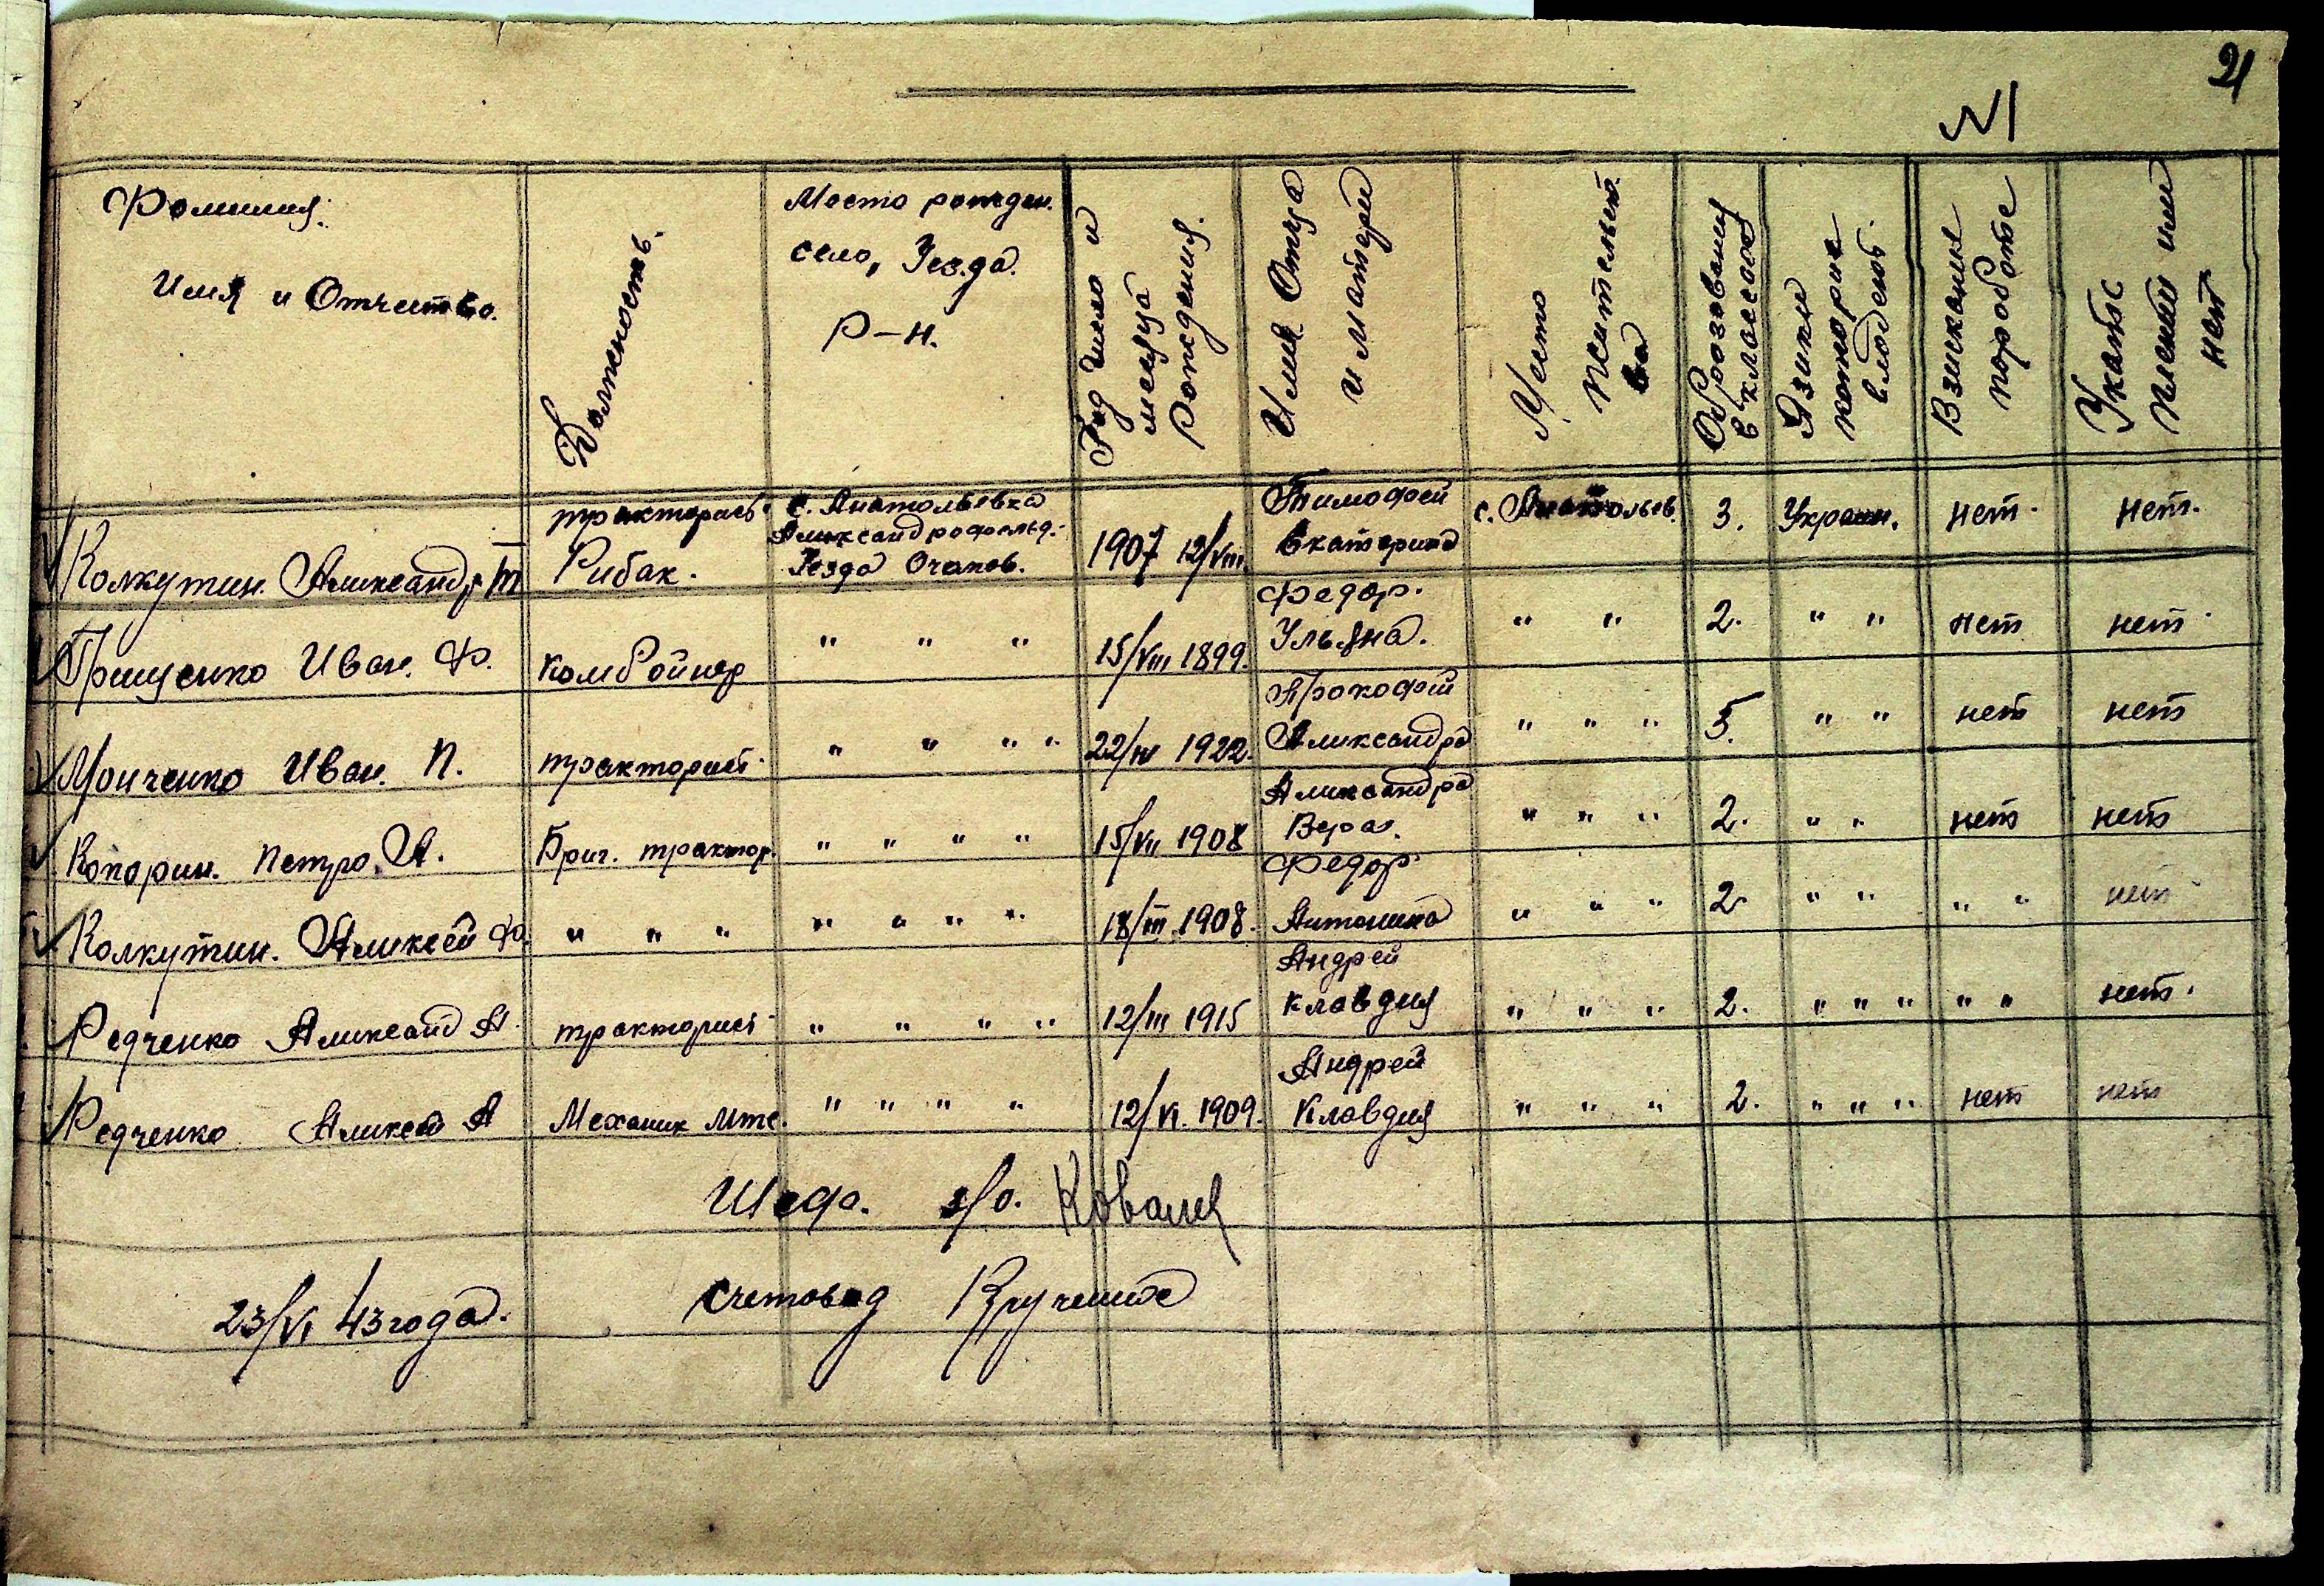 21
21
Фомилия. Имя и Отчество. | Должность. | Место рожден. село, Уезда. Р-н. | Год число и месяца Рождения. | Имя Отца и матери | Место жительства | Оброзования в классах | Языки которые владеют | Взискания по роботе | Укатс или нет
Колкутин. Александр Т | тракторист Рибак. | с. Анатольевка Александрофельд. Уезда Очаков. | 1907 12/VIII | Тимофей Екатерина | с. Анатольев. | 3. | Украин. | нет. | нет.
Грищенко Иван. Ф. | Комбойнер | " " " | 15/VIII 1899. | Федор. Ульяна. | " " | 2. | " " | нет | нет.
Монченко Иван. П. | тракторист. | " " " " | 22/IV 1922. | Прокофий Александра | " " " | 5. | " " | нет | нет
Копорин. Петро. А. | Бриг. трактор. | " " " " | 15/VII 1908 | Александра Вера. | " " " | 2. | " " | нет | нет
Колкутин. Алексей Ф. | " " " | " " " " | 18/III 1908. | Федор. Антонина | " " " | 2 | " " | " " | нет
Редченко Александ А. | тракторист | " " " " | 12/III 1915 | Андрей Клавдия | " " " | 2. | " " " | " " | нет.
Редченко Алексей А | Механик мтс. | " " " " | 12/VI. 1909. | Андрей Клавдия | " " " | 2. | " " " | нет | нет
Шефа. з/о.
23/VI 43 года. счетовод